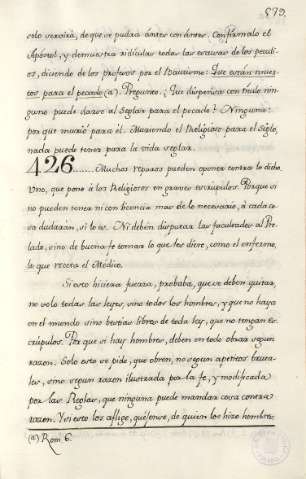 579.
solo vexaxà, de que se pudra ànter con ànter. Confirmalo el
Apòstol, y demuestra ridìculas todas las escusas de los peccadores,
diciendo de los profesos por el Bautismo: Que estàn muertos
para el pecado (a). Pregunto: ¿Que dispensa con titulo ninguno
puede darse al Seglar para el pecado? Ninguna:
porque murió para èl. Muriendo el Religioso para el siglo,
nada puede tener para la vida seglar.
426..... Muchos reparos pueden oponer contra lo dicho.
Uno, que pone à los Religiosos en graves escrupulos. Porque si
no pueden tener ni con licencia mas de lo necesario, à cada cosa
dudaràn, si lo es. Ni deben disputar las facultades al Prelado,
sino de buena fe tomar lo que les diere, como el enfermo,
lo que receta el Mèdico.
Si esto hiciera fuerza, probaba, que se deben quitar,
no solo todas las leyes, sino todos los hombres, y que no haya
en el mundo sino bestias libres de toda ley, que no tengan escrùpulos.
Por que si hay hombres, deben en todo obrar segun
razon. Solo esto se pide, que obren, no segun apetitos bruta-
les, sino segun razon ilustrada por la fe, y modificada
por las Reglas, que ninguna puede mandar cosa contra
razon. Y si esto los aflige, quéjense, de quien los hizo hombres.
(a) Rom. 6.